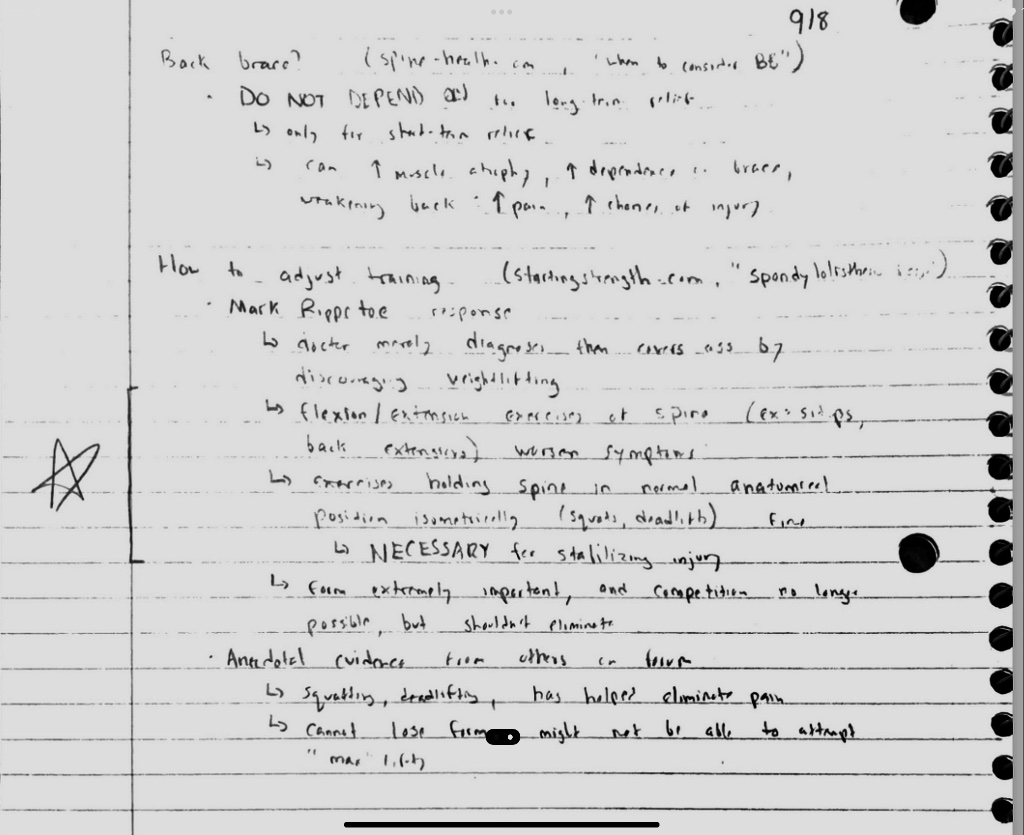 9/8
Back brace? (spine-health.com, "when to consider BE")
· DO NOT DEPEND for long-term relief
↳ only for short-term relief
↳ can ↑ muscle atrophy, ↑ dependence on brace,
weakening back ∴ ↑ pain, ↑ chance of injury
How to adjust training (startingstrength.com, "spondylolisthesis
· Mark Rippetoe response
↳ doctor merely diagnoses then covers ass by
discouraging weightlifting
↳ flexion/extension exercises of spine (ex: situps,
back extensions) worsen symptoms
↳ exercises holding spine in normal anatomical
position isometrically (squats, deadlifts) fine
↳ NECESSARY for stabilizing injury
↳ form extremely important, and competition no longer
possible, but shouldn't eliminate
· Anecdotal evidence from others on forum
↳ squatting, deadlifting, has helped eliminate pain
↳ cannot lose form might not be able to attempt
"max" lift